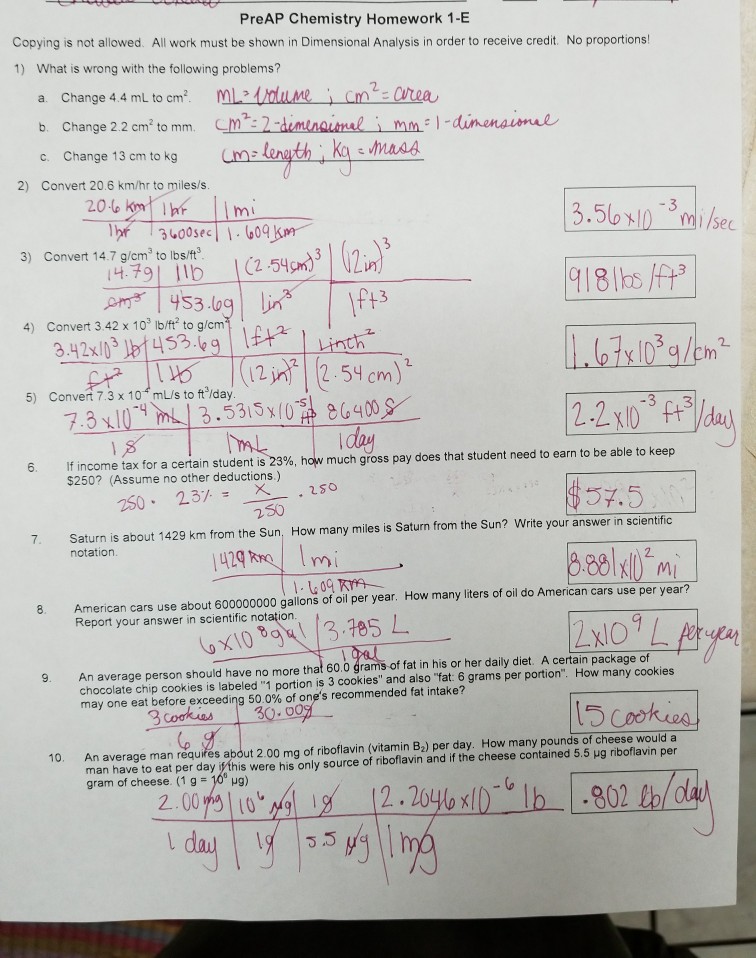 PreAP Chemistry Homework 1-E
Copying is not allowed. All work must be shown in Dimensional Analysis in order to receive credit. No proportions!
1) What is wrong with the following problems?
a. Change 4.4 mL to cm². mL = Volume ; cm² = area
b. Change 2.2 cm² to mm. cm² = 2-dimensional ; mm = 1-dimensional
c. Change 13 cm to kg cm = length ; kg = mass
2) Convert 20.6 km/hr to miles/s.
20.6 km | 1 hr | 1 mi
1 hr | 3600 sec | 1.609 km
3.56 x 10⁻³ mi/sec
3) Convert 14.7 g/cm³ to lbs/ft³.
14.7 g | 1 lb | (2.54 cm)³ | (12 in)³
cm³ | 453.6 g | 1 in³ | 1 ft³
918 lbs/ft³
4) Convert 3.42 x 10³ lb/ft² to g/cm²
3.42x10³ lb | 453.6 g | 1 ft² | 1 inch²
ft² | 1 lb | (12 in)² | (2.54 cm)²
1.67x10³ g/cm²
5) Convert 7.3 x 10⁻⁴ mL/s to ft³/day.
7.3 x10⁻⁴ mL | 3.5315 x10⁻⁵ ft³ | 86400 s
1 s | 1 mL | 1 day
2.2 x10⁻³ ft³/day
6. If income tax for a certain student is 23%, how much gross pay does that student need to earn to be able to keep
$250? (Assume no other deductions.)
250 · 23% = x/250 · 250
$57.5
7. Saturn is about 1429 km from the Sun. How many miles is Saturn from the Sun? Write your answer in scientific
notation.
1429 km | 1 mi
1.609 km
8.881x10² mi
8. American cars use about 600000000 gallons of oil per year. How many liters of oil do American cars use per year?
Report your answer in scientific notation.
6x10⁸ gal | 3.785 L
1 gal
2x10⁹ L per year
9. An average person should have no more that 60.0 grams of fat in his or her daily diet. A certain package of
chocolate chip cookies is labeled "1 portion is 3 cookies" and also "fat: 6 grams per portion". How many cookies
may one eat before exceeding 50.0% of one's recommended fat intake?
3 cookies | 30.00 g
6 g
15 cookies
10. An average man requires about 2.00 mg of riboflavin (vitamin B₂) per day. How many pounds of cheese would a
man have to eat per day if this were his only source of riboflavin and if the cheese contained 5.5 µg riboflavin per
gram of cheese. (1 g = 10⁶ µg)
2.00 mg | 10⁶ µg | 1 g | 2.2046 x10⁻⁶ lb
1 day | 1 g | 5.5 µg | 1 mg
.802 lb/day